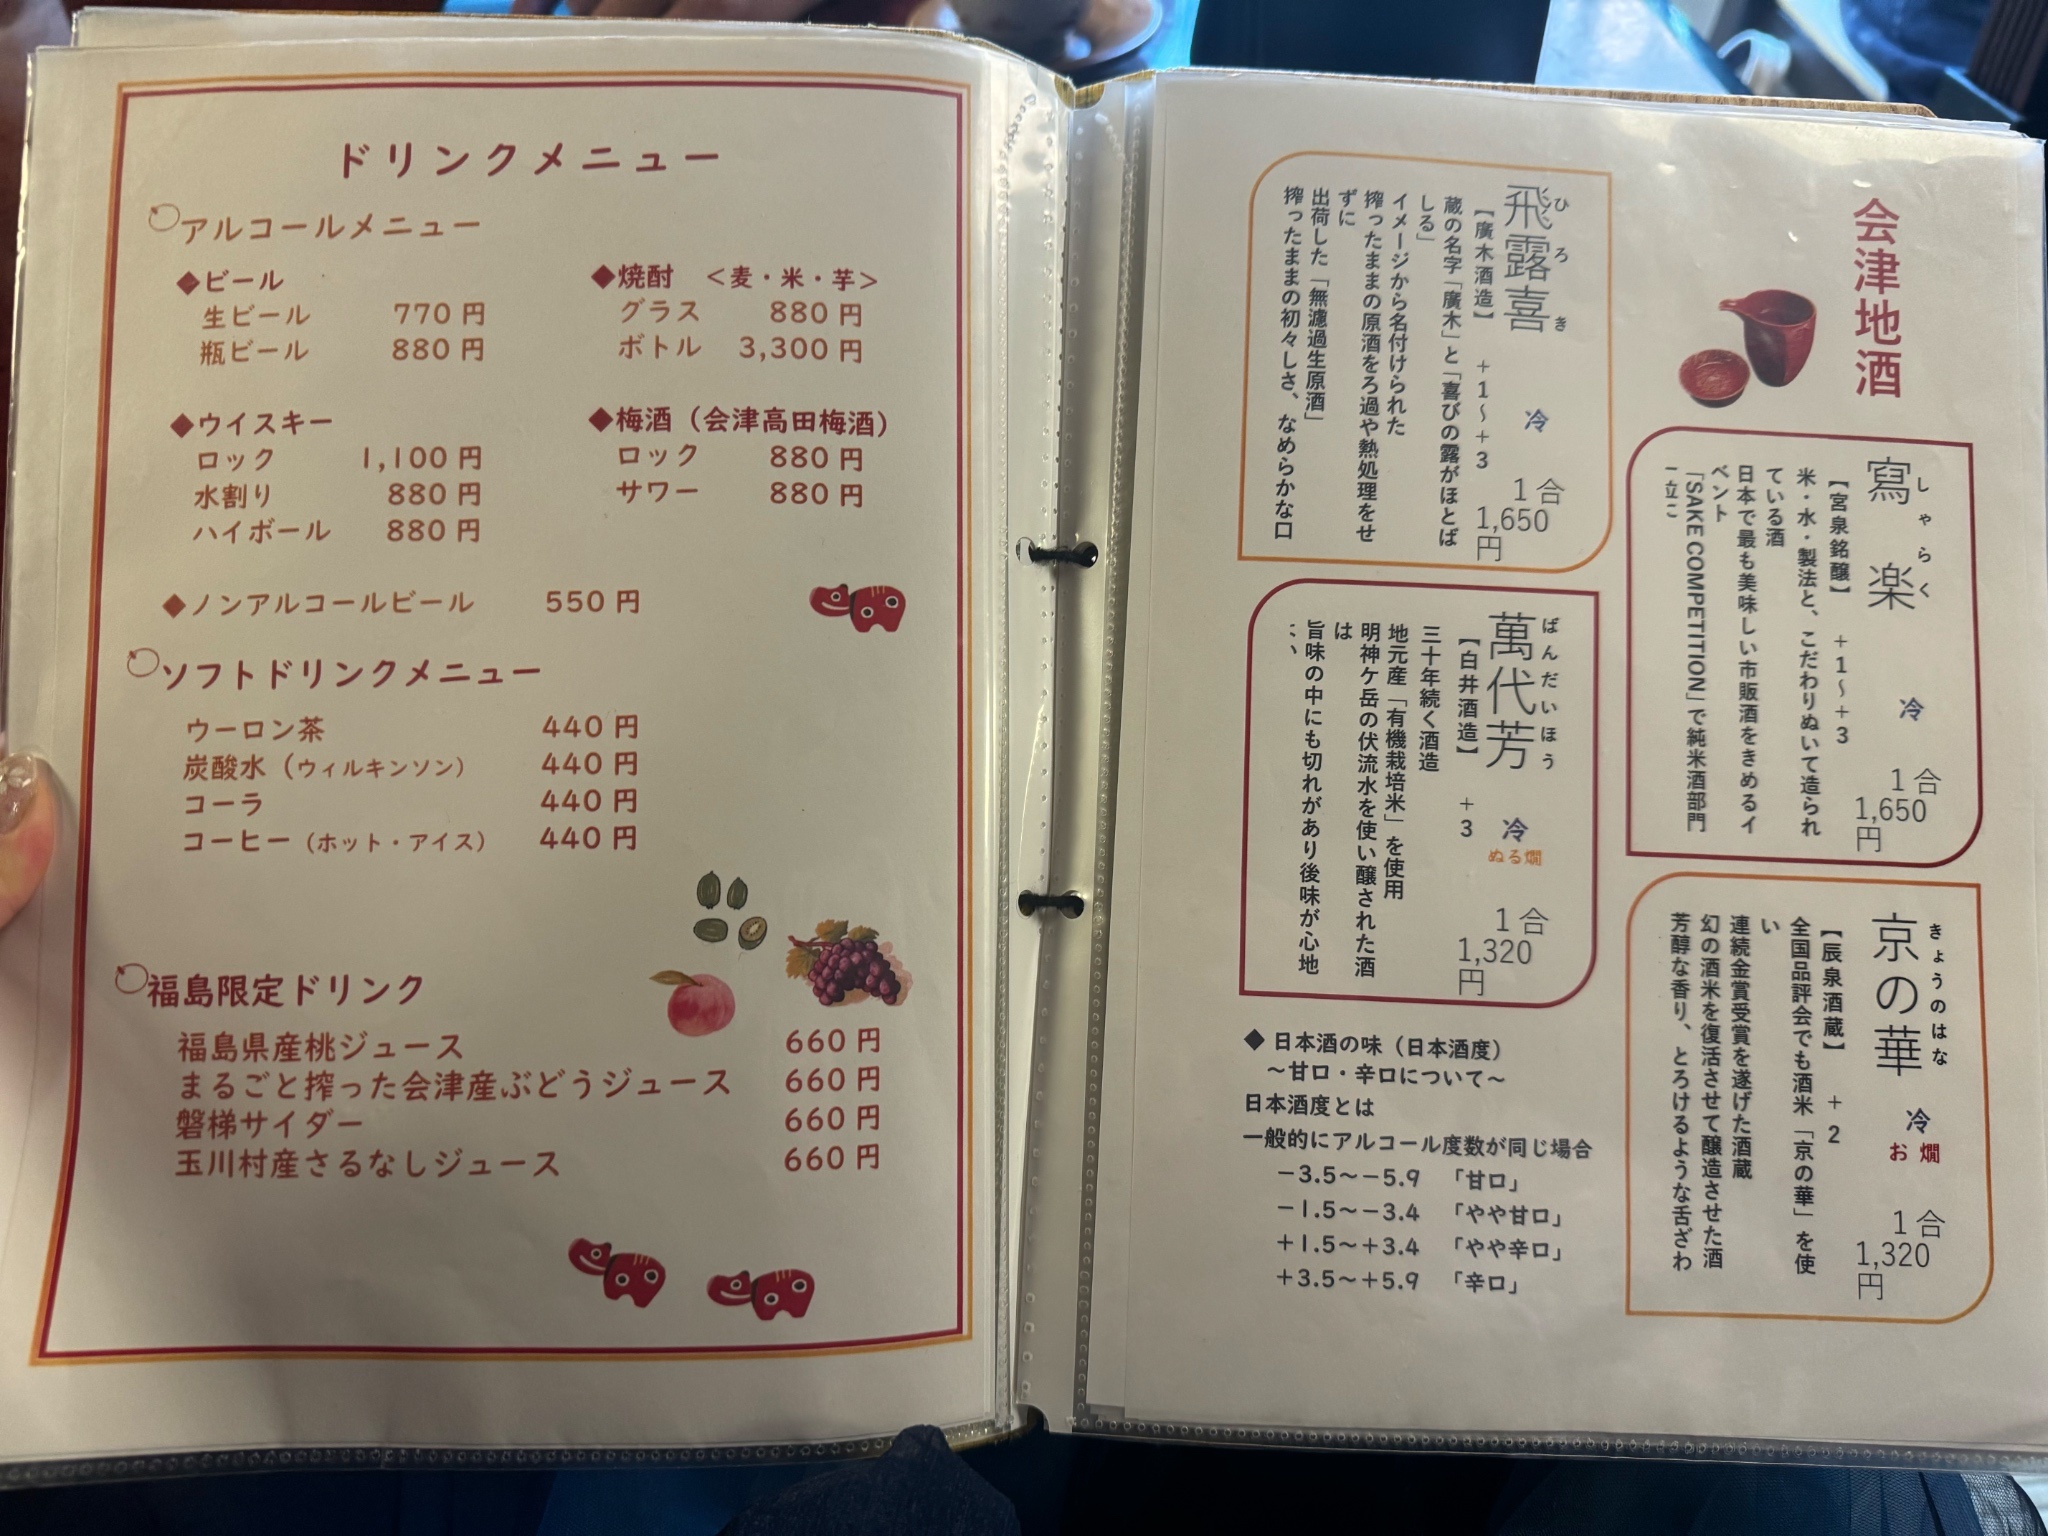 ドリンクメニュー
アルコールメニュー
◆ビール
生ビール 770円
瓶ビール 880円
◆焼酎 <麦・米・芋>
グラス 880円
ボトル 3,300円
◆ウイスキー
ロック 1,100円
水割り 880円
ハイボール 880円
◆梅酒（会津高田梅酒）
ロック 880円
サワー 880円
◆ノンアルコールビール 550円
ソフトドリンクメニュー
ウーロン茶 440円
炭酸水（ウィルキンソン） 440円
コーラ 440円
コーヒー（ホット・アイス） 440円
福島限定ドリンク
福島県産桃ジュース 660円
まるごと搾った会津産ぶどうジュース 660円
磐梯サイダー 660円
玉川村産さるなしジュース 660円
会津地酒
寫楽
しゃらく
【宮泉銘醸】 +1～+3 冷 1合
1,650
円
米・水・製法と、こだわりぬいて造られ
ている酒
日本で最も美味しい市販酒をきめるイ
ベント
「SAKE COMPETITION」で純米酒部門
京の華
きょうのはな
【辰泉酒蔵】 +2 冷 お燗 1合
1,320
円
全国品評会でも酒米「京の華」を使
い
連続金賞受賞を遂げた酒蔵
幻の酒米を復活させて醸造させた酒
芳醇な香り、とろけるような舌ざわ
飛露喜
ひろき
【廣木酒造】 +1～+3 冷 1合
1,650
円
蔵の名字「廣木」と「喜びの露がほとば
しる」
イメージから名付けられた
搾ったままの原酒をろ過や熱処理をせ
ずに
出荷した「無濾過生原酒」
搾ったままの初々しさ、なめらかな口
萬代芳
ばんだいほう
【白井酒造】 +3 冷 ぬる燗 1合
1,320
円
三十年続く酒造
地元産「有機栽培米」を使用
明神ケ岳の伏流水を使い醸された酒
は
旨味の中にも切れがあり後味が心地
◆ 日本酒の味（日本酒度）
～甘口・辛口について～
日本酒度とは
一般的にアルコール度数が同じ場合
－3.5～－5.9 「甘口」
－1.5～－3.4 「やや甘口」
＋1.5～＋3.4 「やや辛口」
＋3.5～＋5.9 「辛口」